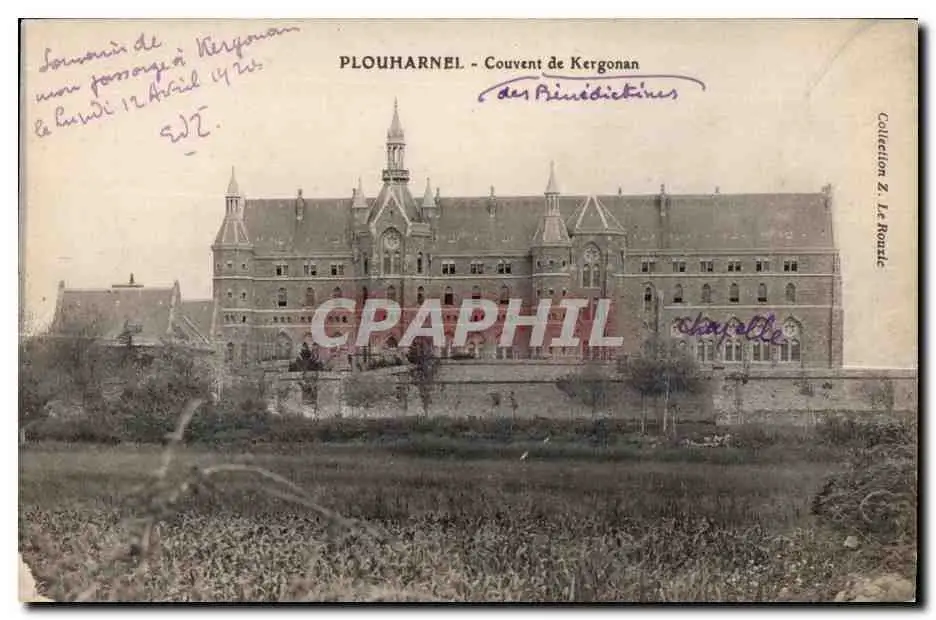 Souvenir de
mon passage à Kergonan
le Lundi 12 Avril 1920
PLOUHARNEL - Couvent de Kergonan
des Bénédictines
Collection Z. Le Rouzic
CPAPHIL
chapelle